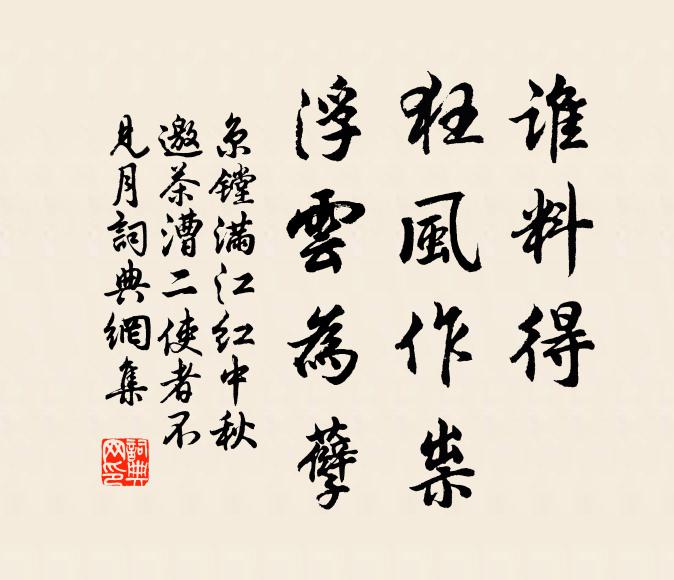 谁料得
狂風作祟
浮雲為孽
京镗滿江红中秋
邀茶漕二使者不
見月詞典網集
詞典
网印